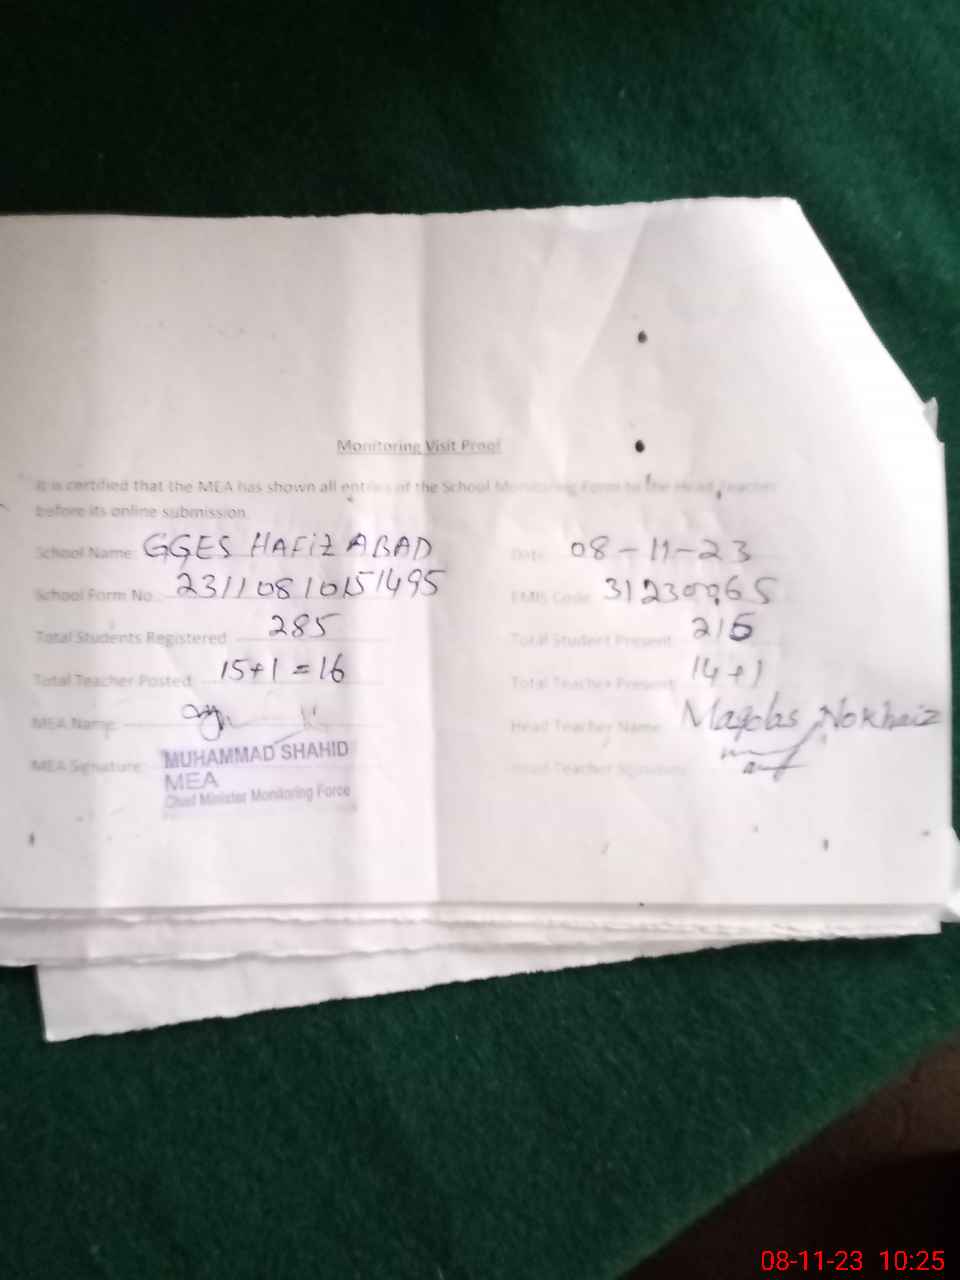 Monitoring Visit Proof
It is certified that the MEA has shown all entries of the School Monitoring Form to the Head Teacher
before its online submission.
School Name: GGES HAFIZ ABAD Date: 08-11-23
School Form No. 23110810151495 EMIS Code: 31230065
Total Students Registered 285 Total Student Present 216
Total Teacher Posted: 15+1=16 Total Teacher Present 14+1
MEA Name: Head Teacher Name: Nokhaiz
MEA Signature: Head Teacher Signature
MUHAMMAD SHAHID
MEA
Chief Minister Monitoring Force
08-11-23 10:25